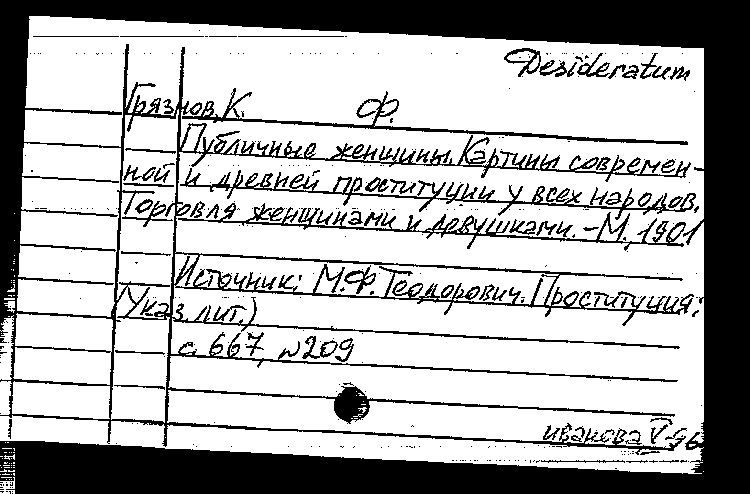 Desideratum
Грязнов, К. Ф.
Публичные женщины. Картины современ-
ной и древней проституции у всех народов.
Торговля женщинами и девушками. -М., 1901
Источник: М.Ф. Теодорович. Проституция:
(Указ. лит.)
с. 667, №209
иванова V-96